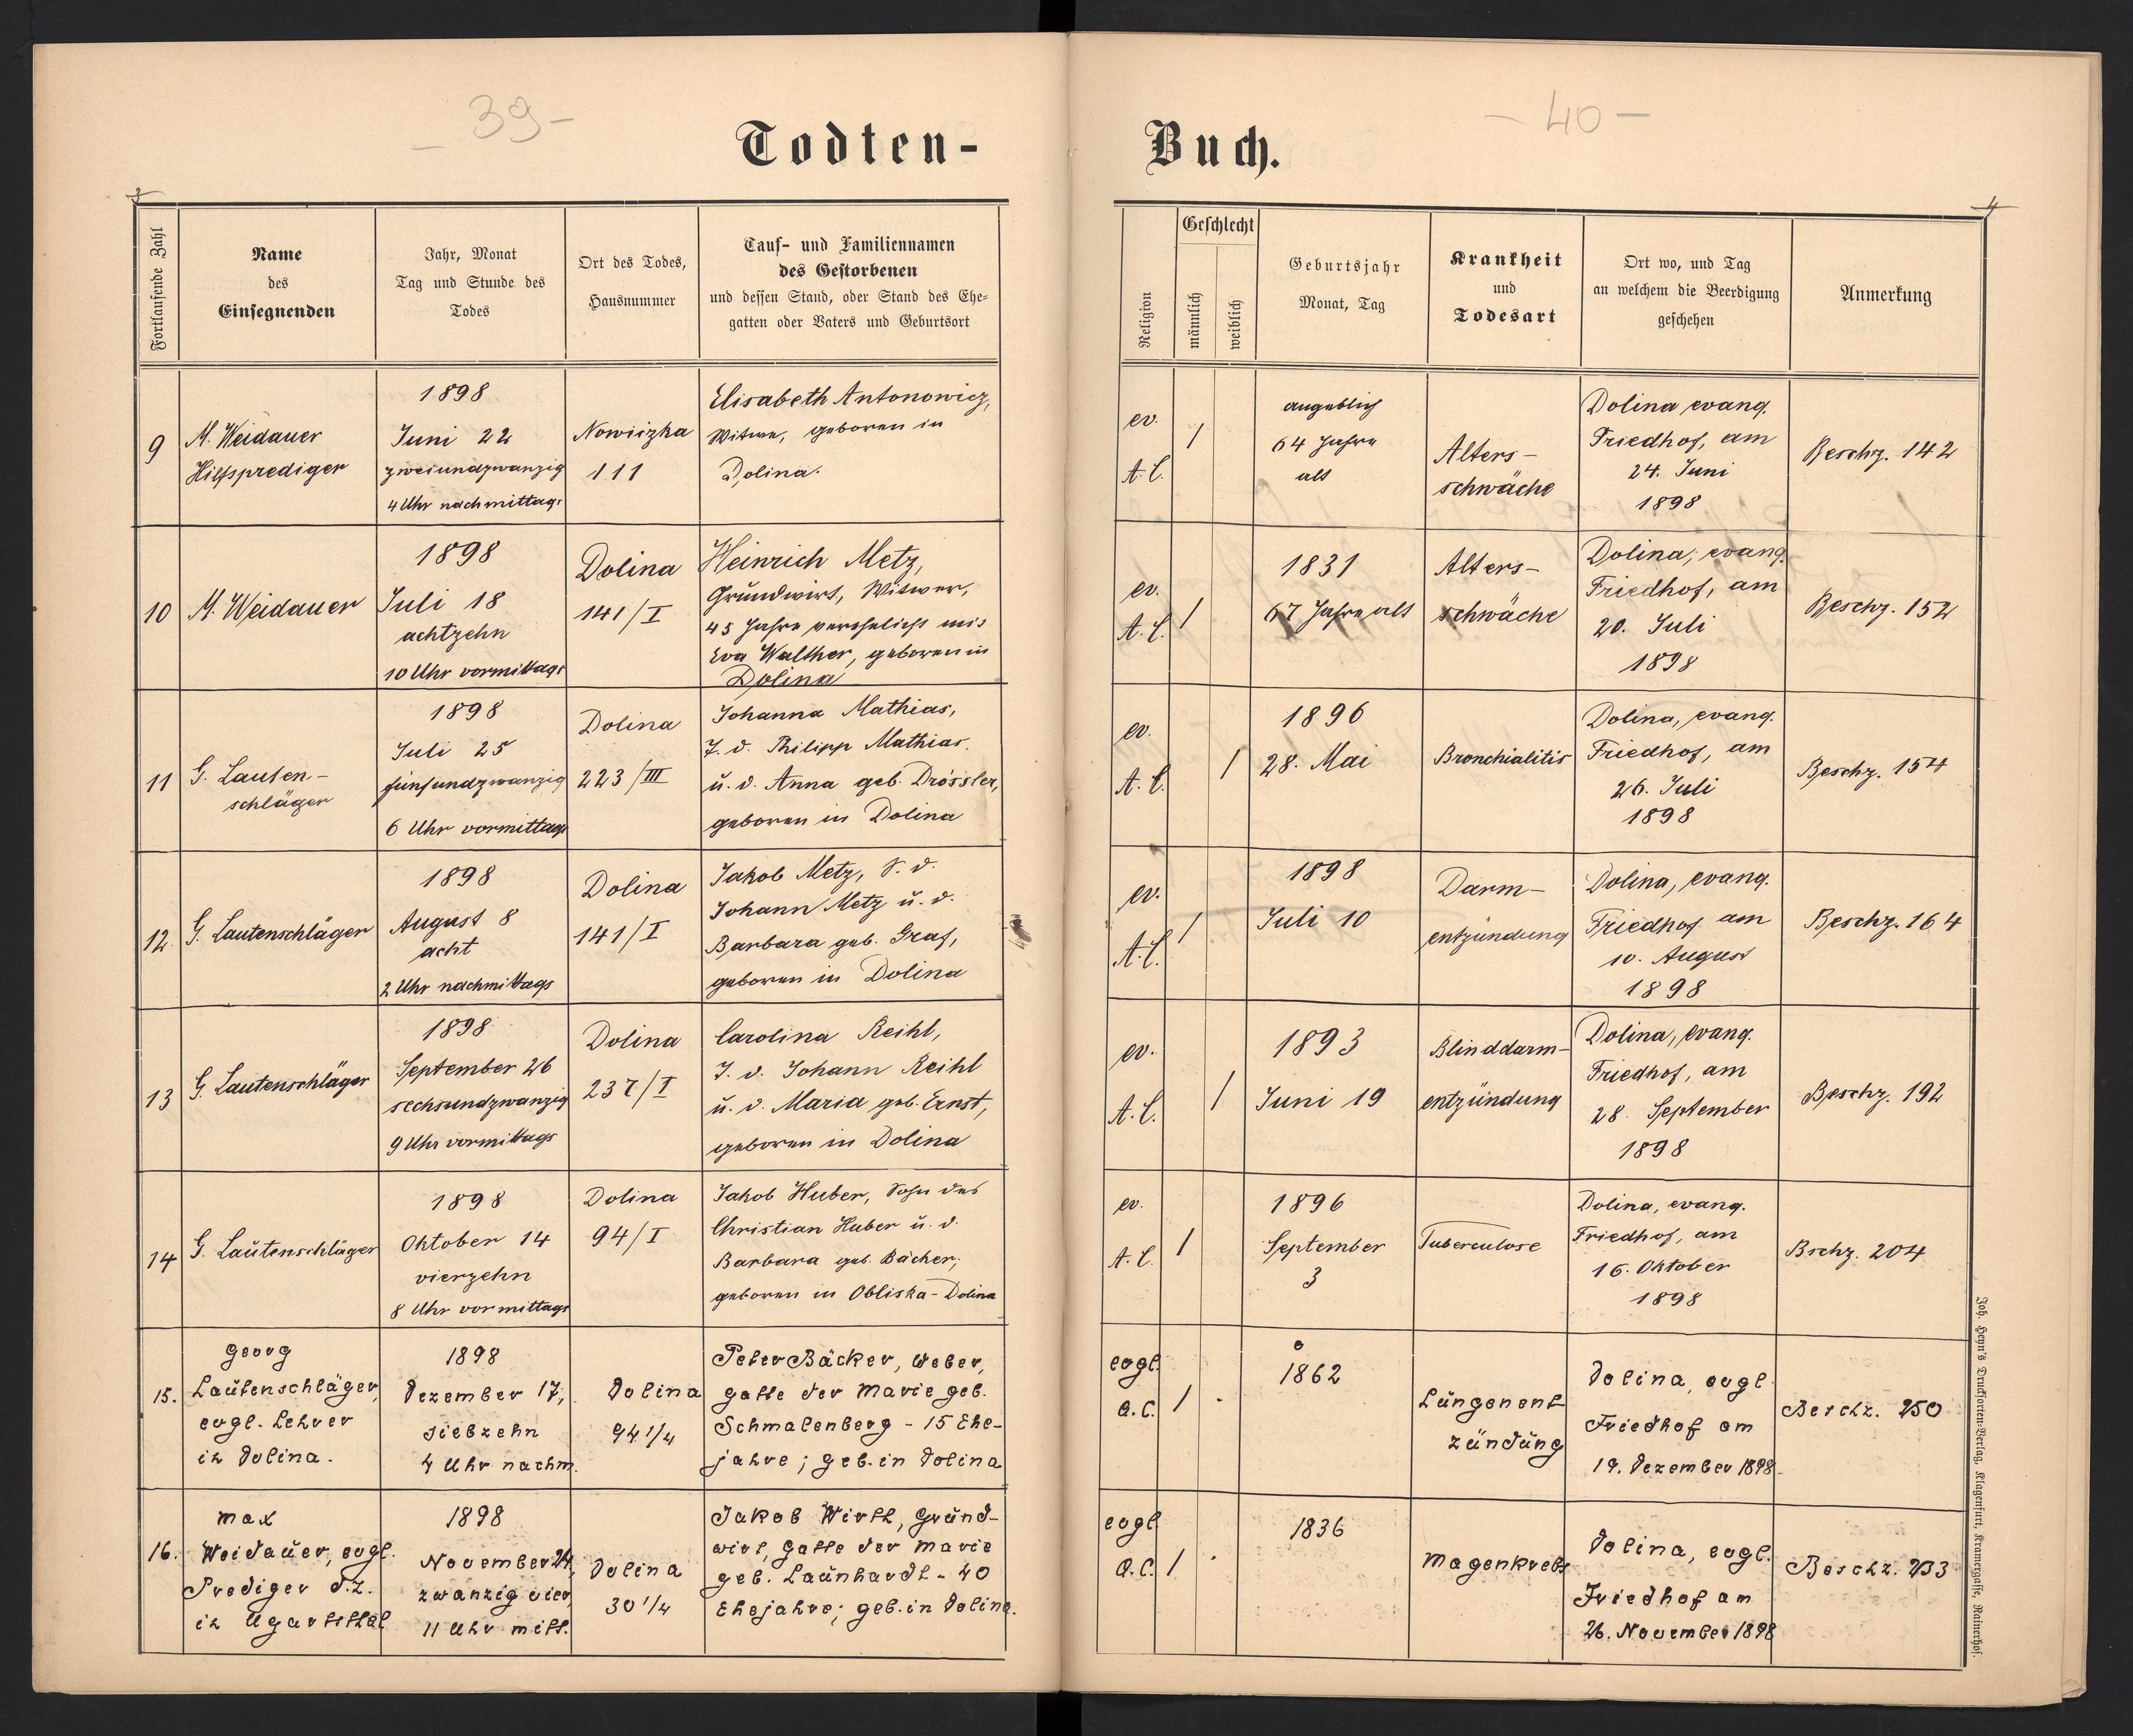 - 39 -
Todten-
3
Fortlaufende Zahl
Name
des
Einsegnenden
Jahr, Monat
Tag und Stunde des
Todes
Ort des Todes,
Hausnummer
Tauf- und Familiennamen
des Gestorbenen
und dessen Stand, oder Stand des Ehe-
gatten oder Vaters und Geburtsort
9
M. Weidauer
Hilfsprediger
1898
Juni 22
zweiundzwanzig
4 Uhr nachmittags
111
Elisabeth Antonowicz,
Witwe, geboren in
Dolina.
10
M. Weidauer
1898
Juli 18
achtzehn
10 Uhr vormittags
Dolina
141/I
Heinrich Metz,
Grundwirt, Witwer,
45 Jahre verehelicht mit
Eva Walther, geboren in
Dolina
11
G. Lauten-
schläger
1898
Juli 25
fünfundzwanzig
6 Uhr vormittags
Dolina
223/III
Johanna Mathias,
T. d. Philipp Mathias
u. d. Anna geb. Drössler,
geboren in Dolina
12
G. Lautenschläger
1898
August 8
acht
2 Uhr nachmittags
Dolina
141/I
Jakob Metz, S. d.
Johann Metz u. d.
Barbara geb. Graf,
geboren in Dolina
13
G. Lautenschläger
1898
September 26
sechsundzwanzig
9 Uhr vormittags
Dolina
237/I
Carolina Reihl,
T. d. Johann Reihl
u. d. Maria geb. Ernst,
geboren in Dolina
14
G. Lautenschläger
1898
Oktober 14
vierzehn
8 Uhr vormittags
Dolina
94/I
Jakob Huber, Sohn des
Christian Huber u. d.
Barbara geb. Bäcker,
geboren in Obliska-Dolina
15.
Georg
Lautenschläger,
evgl. Lehrer
in Dolina.
1898
Dezember 17,
siebzehn
4 Uhr nachm.
Dolina
94 1/4
Peter Bäcker, Weber,
Gatte der Marie geb.
Schmalenberg - 15 Ehe-
jahre; geb. in Dolina
16.
Max
Weidauer, evgl.
Prediger d.Z.
in Ugartsthal
1898
November 24,
zwanzig vier,
11 Uhr mitt.
Dolina
30 1/4
Jakob Wirth, Grund-
wirt, Gatte der Marie
geb. Launhardt - 40
Ehejahre; geb. in Dolina.
- 40 -
Buch.
4
Religion
Geschlecht
männlich
weiblich
Geburtsjahr
Monat, Tag
Krankheit
und
Todesart
Ort wo, und Tag
an welchem die Beerdigung
geschehen
Anmerkung
ev.
A. C.
/
angeblich
64 Jahre
alt
Alters-
schwäche
Dolina evang.
Friedhof, am
24. Juni
1898
Beschz. 142
ev.
A. C.
/
1831
67 Jahre alt
Alters-
schwäche
Dolina, evang.
Friedhof, am
20. Juli
1898
Beschz. 152
ev.
A. C.
/
1896
28. Mai
Bronchialitis
Dolina, evang.
Friedhof, am
26. Juli
1898
Beschz. 154
ev.
A. C.
/
1898
Juli 10
Darm-
entzündung
Dolina, evang.
Friedhof am
10. August
1898
Beschz. 164
ev.
A. C.
/
1893
Juni 19
Blinddarm-
entzündung
Dolina, evang.
Friedhof, am
28. September
1898
Beschz. 192
ev.
A. C.
/
1896
September
3
Tuberculose
Dolina, evang.
Friedhof, am
16. Oktober
1898
Bschz. 204
evgl.
A. C.
/
1862
Lungenent-
zündung
Dolina, evgl.
Friedhof am
19. Dezember 1898
Beschz. 250
evgl.
A. C.
/
1836
Magenkrebs
Dolina, evgl.
Friedhof am
26. November 1898
Beschz. 233
Joh. Heyn's Drucksorten-Verlag, Klagenfurt, Kramergasse, Rainerhof.